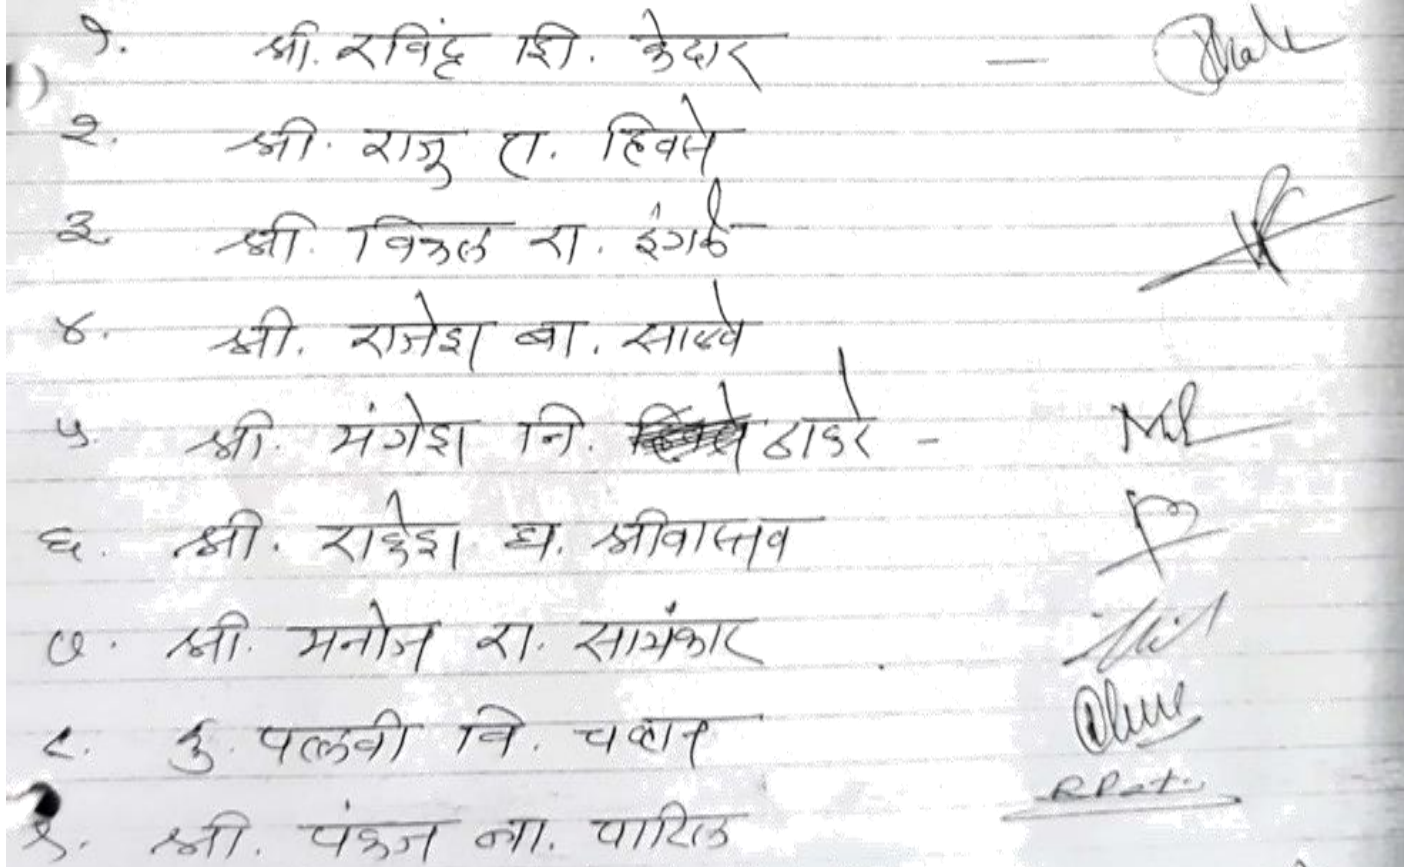 १. श्री. रविंद्र शि. केदार –
१)
२. श्री. राजु हा. हिवसे
३ श्री. विकल रा. इंगळे
४. श्री. राजेश बा. साळवे
५. श्री. मंगेश नि. ठाकरे -
६. श्री. राकेश घ. श्रीवास्तव
७. श्री. मनोज रा. सायंकार
८. कु. पल्लवी वि. चव्हाण
९. श्री. पंकज ना. पाटिल